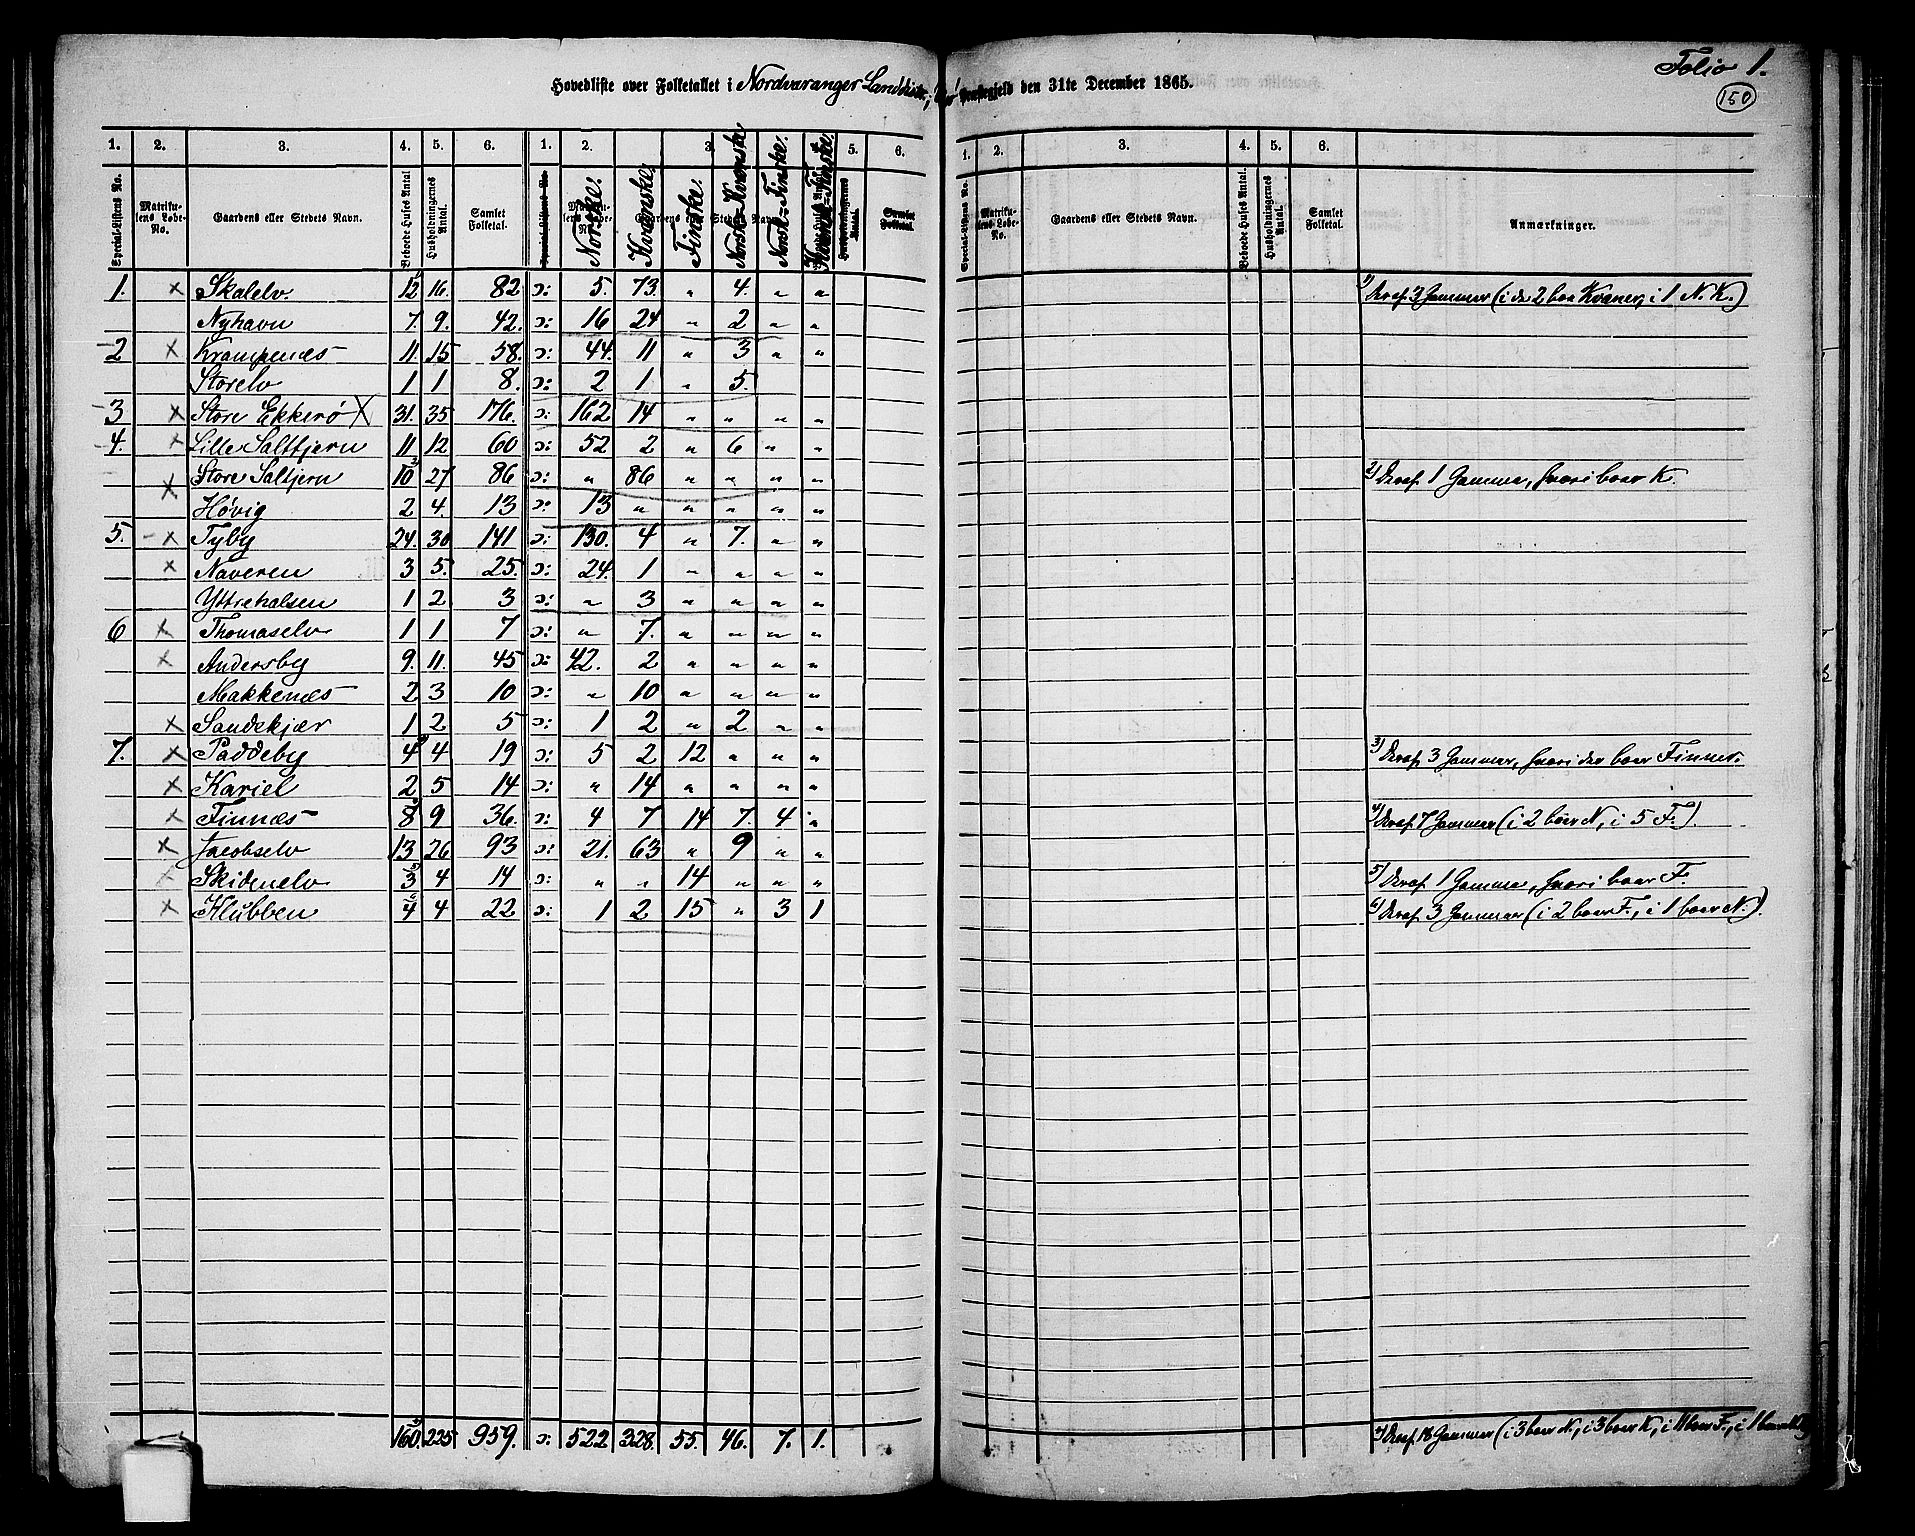 Folio 1.
150
Hovedliste over Folketallet i Nordvaranger Landdistr., Præstegjeld den 31te December 1865.
1. 2. 3. 4. 5. 6. 1. 2. 3. 5. 6. 1. 2. 3. 4. 5. 6.
Special-Listens No. Matrikulens Løbe-No. Gaardens eller Stedets Navn. Beboede Huses Antal Husholdningernes Antal. Samlet Folketal. Norske. Kvænske. Finske. Norsk-Kvænske Norsk-Finske. Kvænsk-Finske. Husholdningernes Antal. Samlet Folketal. Special-Listens No. Matrikulens Løbe-No. Gaardens eller Stedets Navn. Beboede Huses Antal. Husholdningernes Antal. Samlet Folketal. Anmærkninger.
1. × Skalelv. 12 1) 16. 82 ɔ: 5. 73. " 4. " " 1) Deraf 3 Gammer (i de 2 boe Kvæner, i 1 N. K.)
Nyhavn 7. 9. 42. ɔ: 16 24 " 2 " "
2 × Krampenæs 11. 15 58. ɔ: 44. 11 " 3 " "
Storelv 1 1 8. ɔ: 2 1 " 5.
3 × Store Ekkerø X 31. 35 176. ɔ: 162 14 " " " "
4. × Lille Saltjern 11 12 60 ɔ: 52 2 " 6 " "
× Store Saltjern 10 2) 27 86 ɔ: " 86 " " " " 2) Deraf 1 Gamme, hvori boer K.
Høvig 2 4. 13 ɔ: 13 " " " " "
5. × Tyby 24. 30 141 ɔ: 130. 4 " 7. " "
× Naveren 3 5. 25. ɔ: 24. 1 " " " "
Yttrehalsen 1 2 3 ɔ: " 3 " " " "
6 × Thomaselv 1 1 7 ɔ: " 7. " " " "
× Andersby 9. 11. 45 ɔ: 42. 2 " " " "
Makkenæs 2 3 10 ɔ: " 10 " " " "
× Sandskjær 1 2 5 ɔ: 1 2 " 2 " "
7. × Paddeby 4 3) 4 19 ɔ: 5 2 12 " " " 3) Deraf 3 Gammer, hvori der boer Finner.
× Kariel 2 5 14 ɔ: " 14 " " " "
× Finnæs 8 4) 9 36. ɔ: 4 7 14 7. 4 " 4) Deraf 7 Gammer (i 2 boer N, i 5 F.).
× Jacobselv 13 26 93 ɔ: 21. 63 " 9 " "
× Skidenelv 3 5) 4 14 ɔ: " " 14 " " " 5) Deraf 1 Gamme, hvori boer F.
× Klubben 4 6) 4 22 ɔ: 1 2 15 " 3 1 6) Deraf 3 Gammer (i 2 boer F., i 1 boer N.).
160. 225 959. ɔ: 522 328. 55. 46. 7. 1. Deraf 18 Gammer (i 3 boer N., i 3 boer K, i 11 boer F., i 1